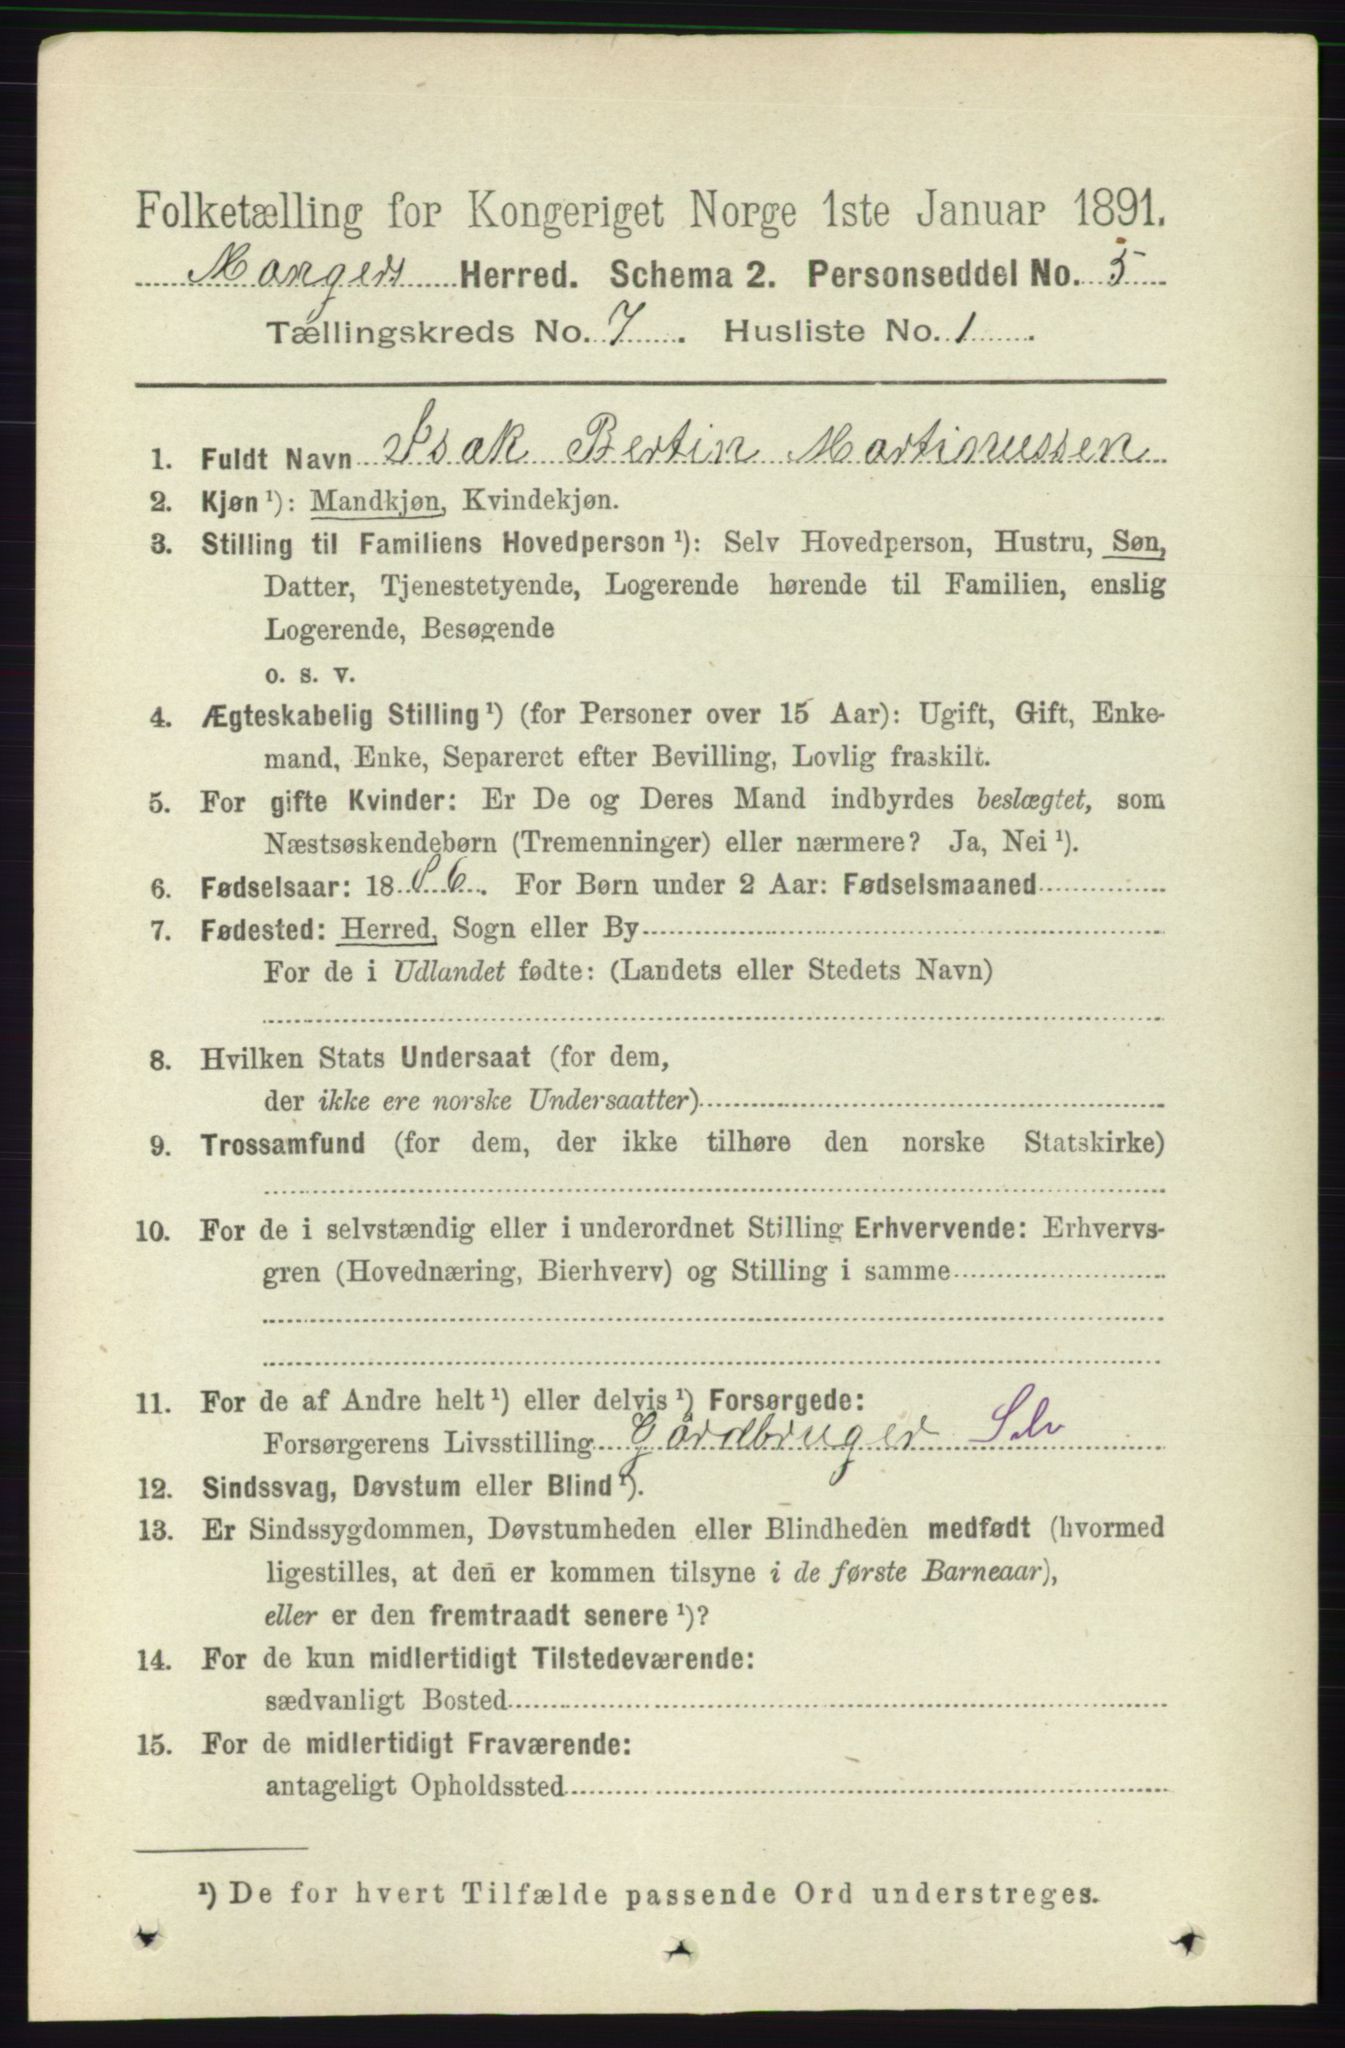 Folketælling for Kongeriget Norge 1ste Januar 1891.
Mangers Herred. Schema 2. Personseddel No. 5
Tællingskreds No. 7. Husliste No. 1.
1. Fuldt Navn Isak Bertin Martinussen
2. Kjøn ¹): Mandkjøn, Kvindekjøn.
3. Stilling til Familiens Hovedperson ¹): Selv Hovedperson, Hustru, Søn,
Datter, Tjenestetyende, Logerende hørende til Familien, enslig
Logerende, Besøgende
o. s. v.
4. Ægteskabelig Stilling ¹) (for Personer over 15 Aar): Ugift, Gift, Enke-
mand, Enke, Separeret efter Bevilling, Lovlig fraskilt.
5. For gifte Kvinder: Er De og Deres Mand indbyrdes beslægtet, som
Næstsøskendebørn (Tremenninger) eller nærmere? Ja, Nei ¹).
6. Fødselsaar: 1886. For Børn under 2 Aar: Fødselsmaaned
7. Fødested: Herred, Sogn eller By
For de i Udlandet fødte: (Landets eller Stedets Navn)
8. Hvilken Stats Undersaat (for dem,
der ikke ere norske Undersaatter)
9. Trossamfund (for dem, der ikke tilhøre den norske Statskirke)
10. For de i selvstændig eller i underordnet Stilling Erhvervende: Erhvervs-
gren (Hovednæring, Bierhverv) og Stilling i samme
11. For de af Andre helt ¹) eller delvis ¹) Forsørgede:
Forsørgerens Livsstilling Gårdbruger Selv
12. Sindssvag, Døvstum eller Blind ¹).
13. Er Sindssygdommen, Døvstumheden eller Blindheden medfødt (hvormed
ligestilles, at den er kommen tilsyne i de første Barneaar),
eller er den fremtraadt senere ¹)?
14. For de kun midlertidigt Tilstedeværende:
sædvanligt Bosted
15. For de midlertidigt Fraværende:
antageligt Opholdssted
¹) De for hvert Tilfælde passende Ord understreges.